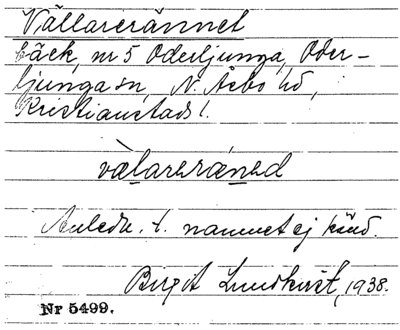 Vällarerännet
bäck, nr 5 Oderljunga, Oder-
ljunga sn, N. Åsbo hd,
Kristianstads l.
välareräned
Anledn. t. namnet ej känd.
Birgit Lundkvist, 1938.
Nr 5499.